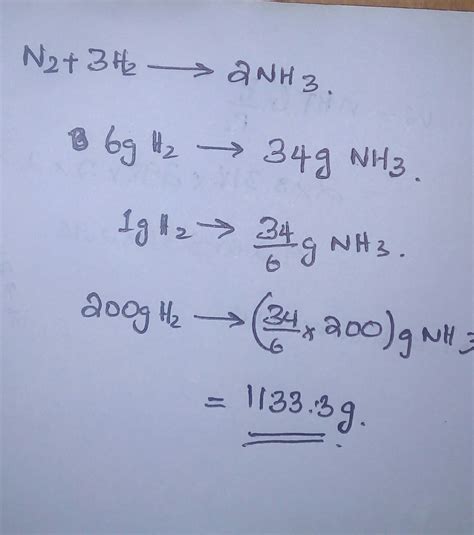 N2+3H2 → 2NH3.
6g H2 → 34g NH3.
1g H2 → 34/6 g NH3.
200g H2 → (34/6 × 200) g NH3
= 1133.3g.